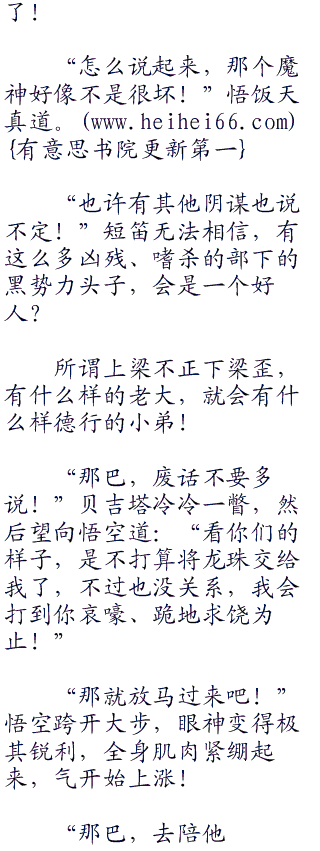 了！
“怎么说起来，那个魔
神好像不是很坏！”悟饭天
真道。(www.heihei66.com)
{有意思书院更新第一}
“也许有其他阴谋也说
不定！”短笛无法相信，有
这么多凶残、嗜杀的部下的
黑势力头子，会是一个好
人？
所谓上梁不正下梁歪，
有什么样的老大，就会有什
么样德行的小弟！
“那巴，废话不要多
说！”贝吉塔冷冷一瞥，然
后望向悟空道：“看你们的
样子，是不打算将龙珠交给
我了，不过也没关系，我会
打到你哀嚎、跪地求饶为
止！”
“那就放马过来吧！”
悟空跨开大步，眼神变得极
其锐利，全身肌肉紧绷起
来，气开始上涨！
“那巴，去陪他